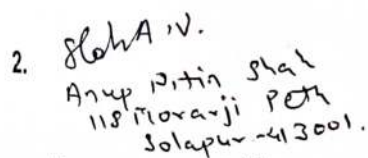 2. Shah A.V.
Anup Nitin Shah
118 Morarji Peth
Solapur-413001.